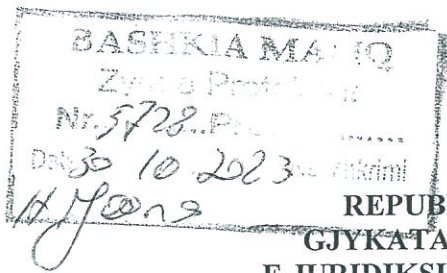 BASHKIA MALIQ
Zyra e Protokollit
Nr. 5728 Pr
Dt. 30 10 2023
REPUB
GJYKATA
E JURIDIKS